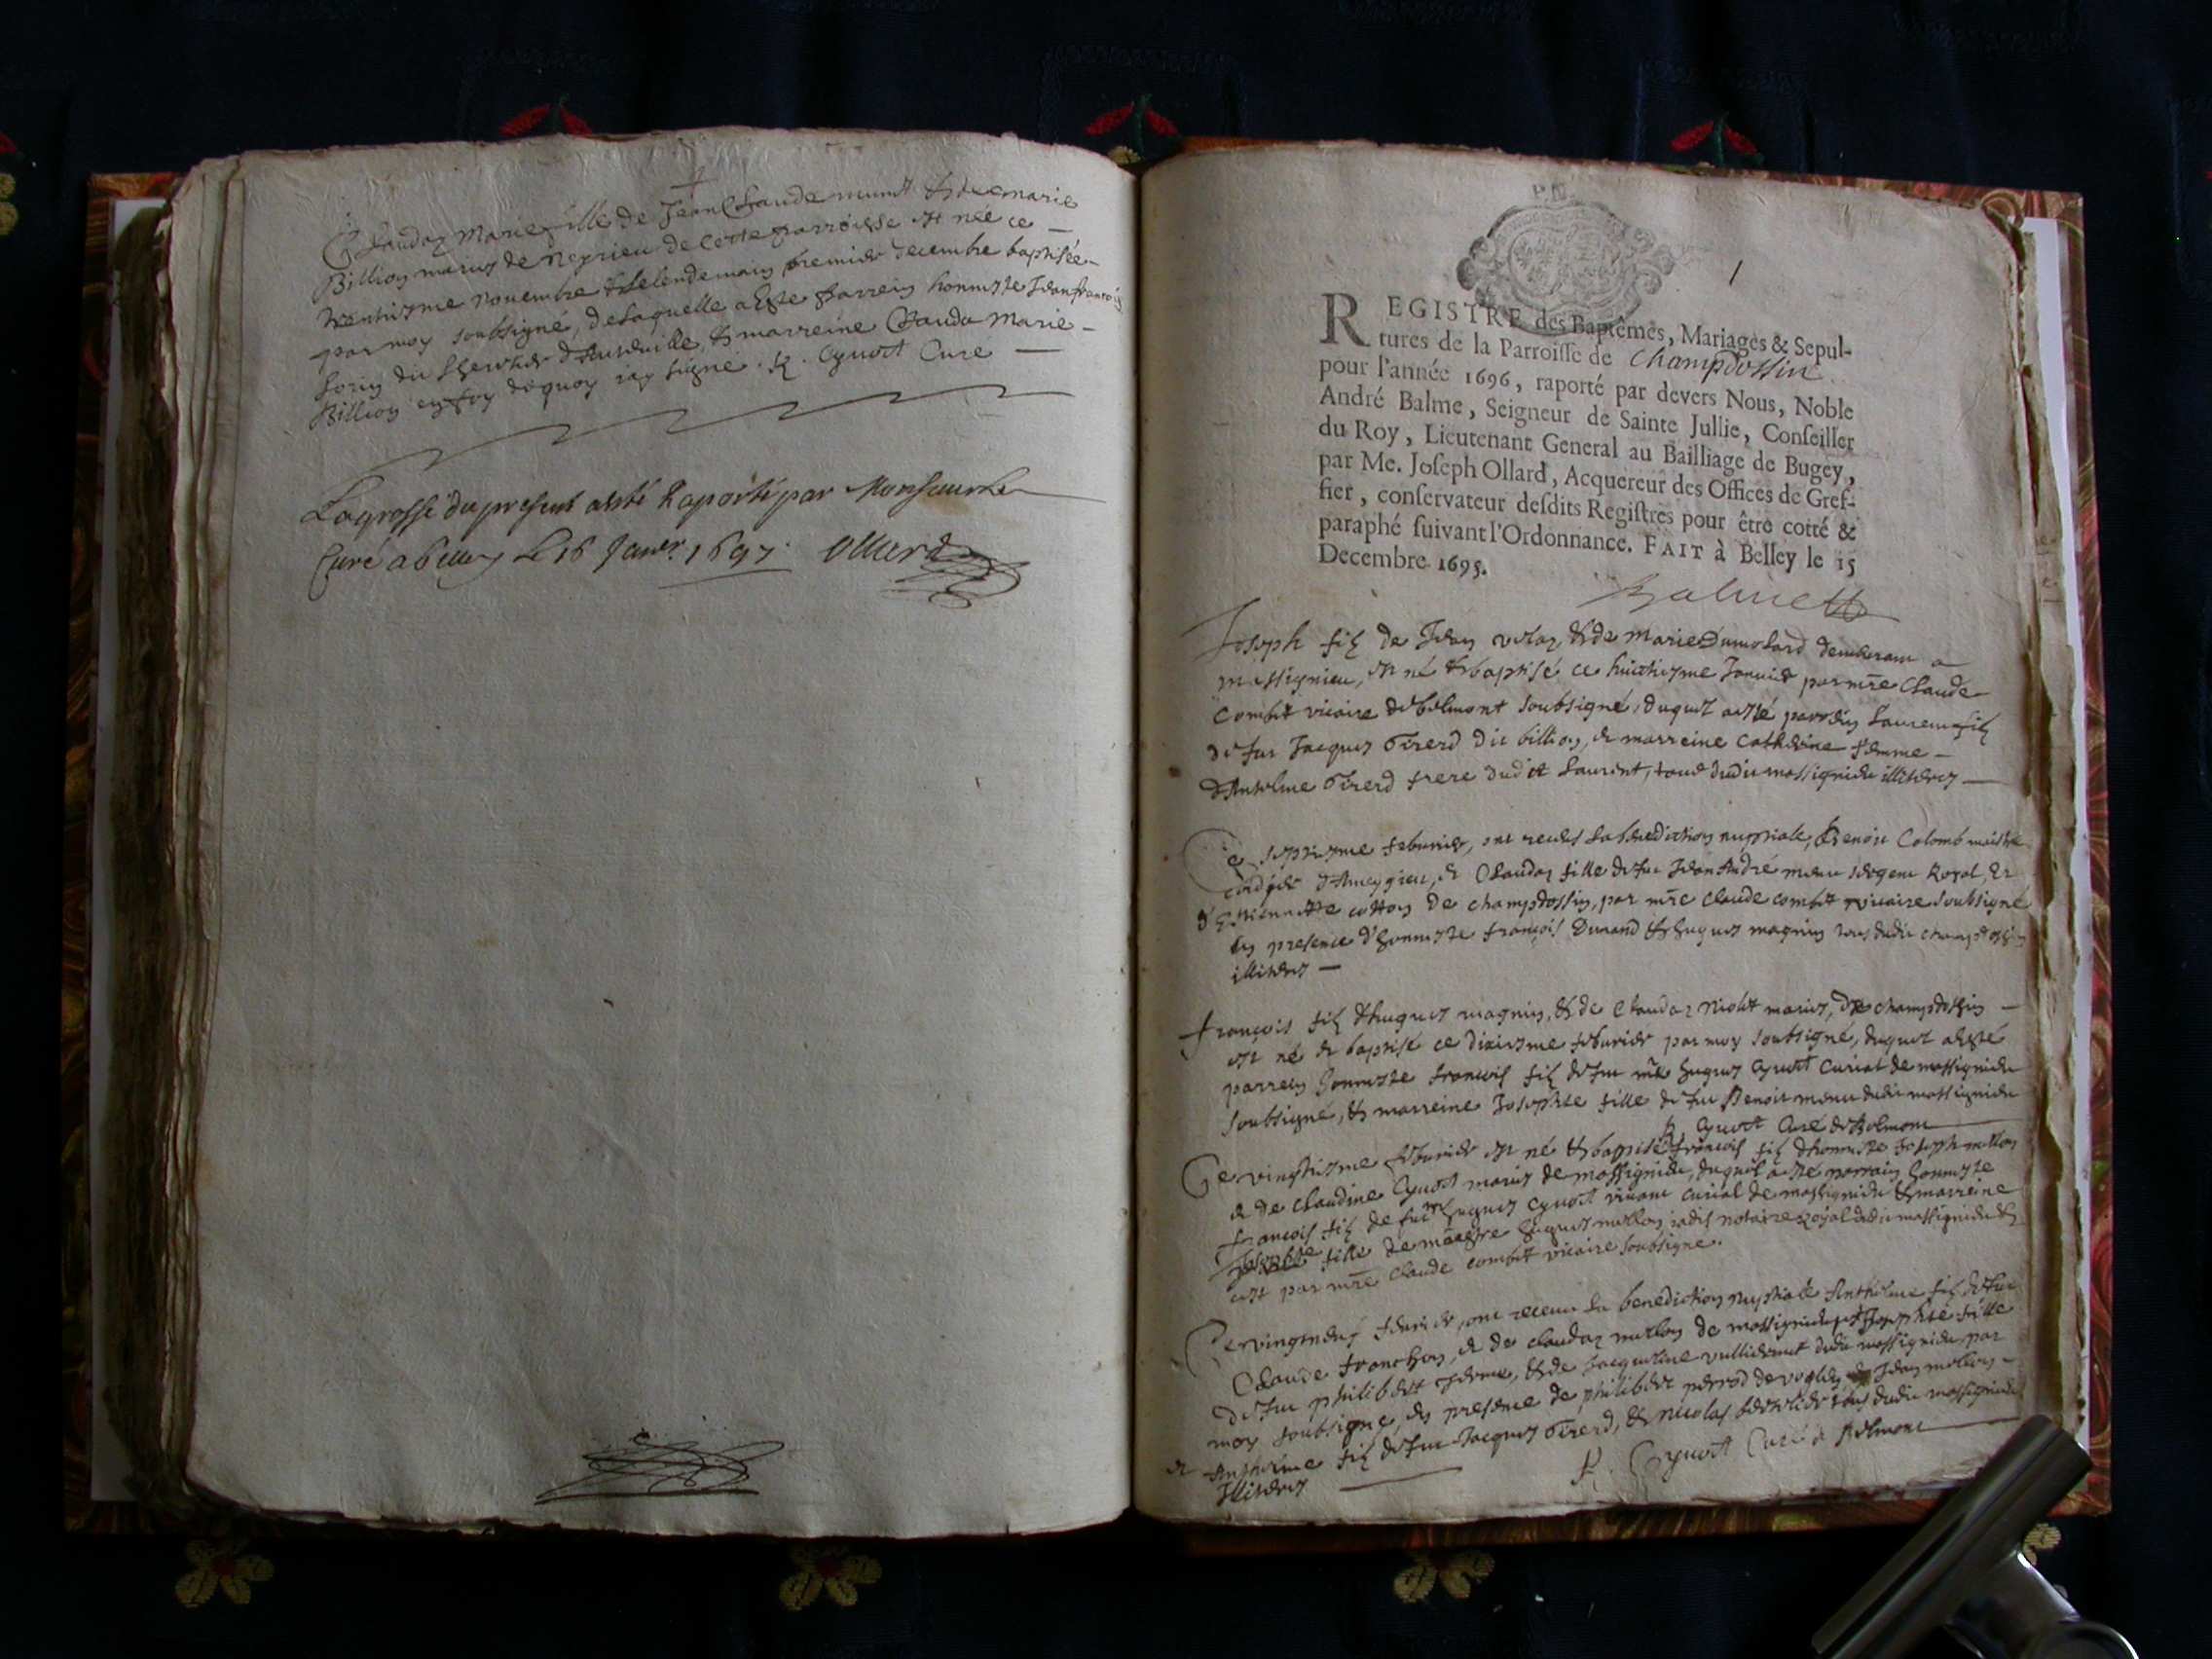 Claudaz Marie fille de Jean Claude munet & de marie
Billion mariez de neyrieu de cette parroisse est née ce
trentiesme nouembre & le lendemain premier decembre baptisée
par moy soubsigné, de laquelle a esté parrein honneste Jean francois
marreine Clauda Marie
Billion en foy de quoy iay signé. Cyuoct Curé
La grosse du present a esté Raporté par Monsieur le
Curé a belley le 16 Janr. 1697. Ollard
1
REGISTRE des Baptêmes, Mariages & Sepul-
tures de la Parroisse de Champdossin
pour l'année 1696, raporté par devers Nous, Noble
André Balme, Seigneur de Sainte Jullie, Conseiller
du Roy, Lieutenant General au Bailliage de Bugey,
par Me. Joseph Ollard, Acquereur des Offices de Gref-
fier, conservateur desdits Registres pour être cotté &
paraphé suivant l'Ordonnance. FAIT à Belley le 15
Decembre 1695.
Balme
Joseph filz de Jean & de Marie Dumolard demeurant a
massignieu, est né & baptisé ce huictiesme Januier par mre Claude
Combet vicaire de belmont soubsigné, duquel a esté parrein Laurent filz
de feu Jacques Tirerd dit billion, & marreine Catherine femme
d'Antelme Tirerd frere dudit Laurent, tous dudit massignieu illiterez
Ce septiesme feburier, ont receu la benediction nuptiale, Benoit Colomb maistre
d'Ameyzieu, & Claudaz fille de feu Jean André sergent Royal, &
d'Estiennette cotton de champdossin, par mre Claude combet vicaire soubsigné
en presence d'honneste françois Durand & hugues magnin tous dudit champdossin
illiterez
François filz d'hugues magnin, & de Claudaz mariez, de champdossin
est né & baptisé ce dixiesme feburier par moy soubsigné, duquel a esté
parrein honneste francois filz de feu mre hugues Cyuoct Curial de massignieu
soubsigné, & marreine Josephte fille de feu Benoit dudit massignieu
Cyuoct Curé de Belmont
Ce vingtiesme feburier est né & baptisé francois filz d'honneste Joseph mollon
& de Claudine Cyuoct mariez de massignieu, duquel a esté parrain honneste
francois filz de feu mre hugues Cyuoct viuant curial de massignieu & marreine
Josephte fille de maistre hugues mollon iadis notaire Royal dudit massignieu &
par mre Claude combet vicaire soubsigné.
Ce vingtneuf feurier, ont receu la benediction nuptiale Anthelme filz de feu
Claude & de claudaz mollon de massignieu & Josephte fille
de feu philibert & de Jacqueline dudit massignieu par
moy soubsigné, en presence de philibert perrod Jean mollion
& Anthelme filz de feu Jacques Tirerd, & nicolas tous dudit massignieu
Illiterez Cyuoct Curé de Belmont